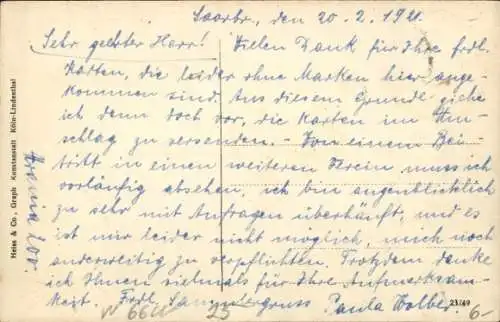 Saarbr., den 20. 2. 1921.
Sehr geehrter Herr! Vielen Dank für Ihre frdl.
Karten, die leider ohne Marken hier ange-
kommen sind. Aus diesem Grunde ziehe
ich denn doch vor, die Karten im Um-
schlag zu versenden. - Von einem Bei-
tritt in einen weiteren Verein muss ich
vorläufig absehen, ich bin augenblicklich
zu sehr mit Anfragen überhäuft, und es
ist mir leider nicht möglich, mich noch
anderweitig zu verpflichten. Trotzdem danke
ich Ihnen vielmals für Ihre Aufmerksam-
keit. Frdl. Sammlergruss Paula Wolber.
Heiss & Co., Graph Kunstanstalt Köln-Lindenthal
23/49
23
6-